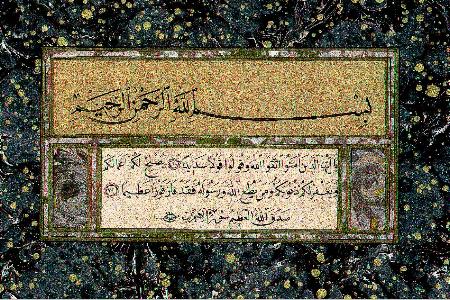 بسم الله الرحمن الرحيم
يا ايها الذين آمنوا اتقوا الله وقولوا قولا سديدا يصلح لكم اعمالكم
ويغفر لكم ذنوبكم ومن يطع الله ورسوله فقد فاز فوزا عظيما
صدق الله العظيم